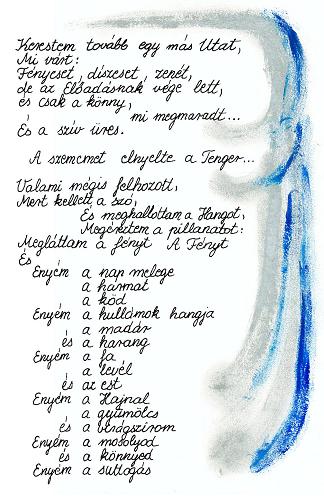 Kerestem tovább egy más Utat,
Mi várt:
Fényeset, díszeset, zenét,
de az Előadásnak vége lett,
és csak a könny,
mi megmaradt...
És a szív üres.
A szememet elnyelte a Tenger...
Valami mégis felhozott,
Mert kellett a szó,
És meghallottam a Hangot,
Megéreztem a pillanatot:
Megláttam a fényt A Fényt
És
Enyém a nap melege
a harmat
a köd
Enyém a hullámok hangja
a madár
és a harang
Enyém a fa
a levél
és az est
Enyém a Hajnal
a gyümölcs
és a virágszirom
Enyém a mosolyod
és a könnyed
Enyém a suttogás